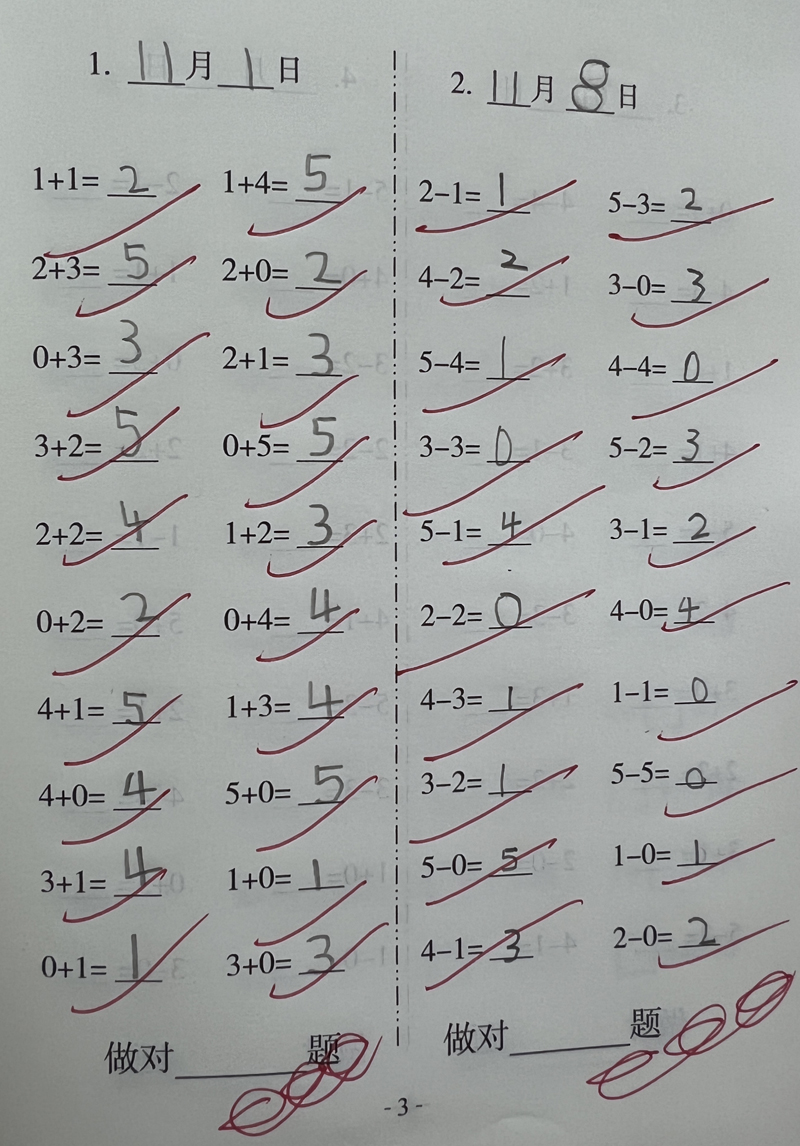 1. 11月1日
1+1=2 1+4=5
2+3=5 2+0=2
0+3=3 2+1=3
3+2=5 0+5=5
2+2=4 1+2=3
0+2=2 0+4=4
4+1=5 1+3=4
4+0=4 5+0=5
3+1=4 1+0=1
0+1=1 3+0=3
做对______题
2. 11月8日
2-1=1 5-3=2
4-2=2 3-0=3
5-4=1 4-4=0
3-3=0 5-2=3
5-1=4 3-1=2
2-2=0 4-0=4
4-3=1 1-1=0
3-2=1 5-5=0
5-0=5 1-0=1
4-1=3 2-0=2
做对______题
-3-